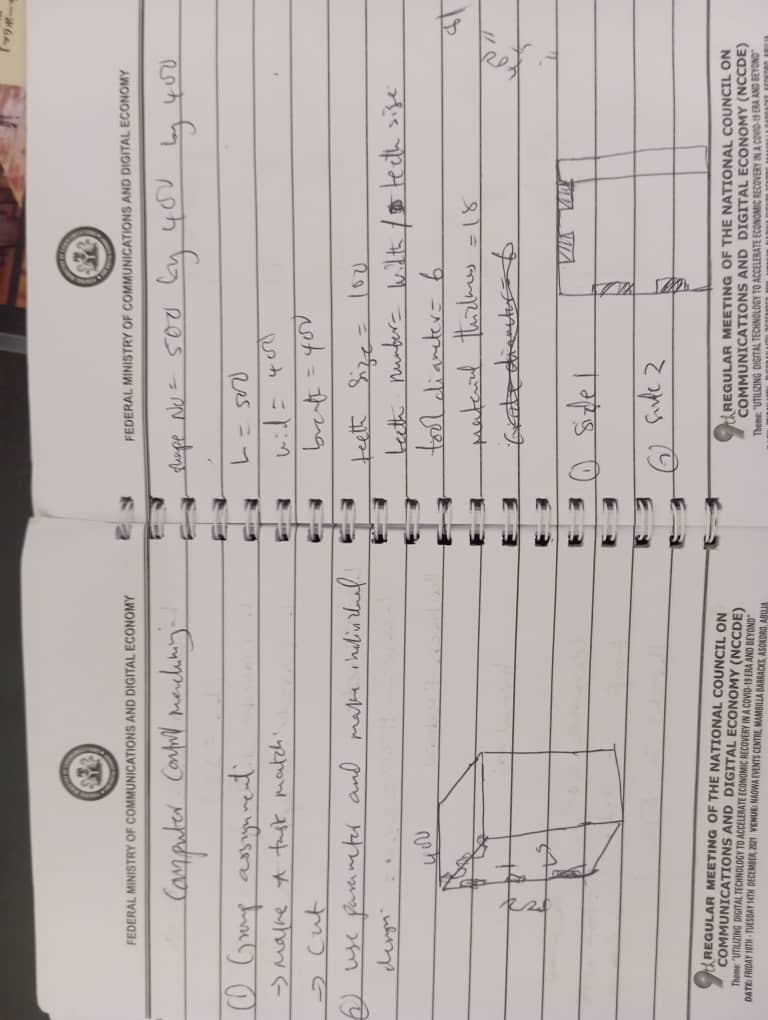 FEDERAL MINISTRY OF COMMUNICATIONS AND DIGITAL ECONOMY
Computer Control Machining
(1) Group assignment
→ Make test match
→ Cut
(2) use parameter and make individual
design
400
9th REGULAR MEETING OF THE NATIONAL COUNCIL ON
COMMUNICATIONS AND DIGITAL ECONOMY (NCCDE)
Theme: "UTILIZING DIGITAL TECHNOLOGY TO ACCELERATE ECONOMIC RECOVERY IN A COVID-19 ERA AND BEYOND"
DATE: FRIDAY 10TH - TUESDAY 14TH DECEMBER, 2021 VENUE: NAOWA EVENTS CENTRE, MAMBILLA BARRACKS, ASOKORO, ABUJA
FEDERAL MINISTRY OF COMMUNICATIONS AND DIGITAL ECONOMY
= 500 by 400 by 400
h = 500
wid = 400
= 400
teeth size = 100
teeth number = width / teeth size
tool diameter = 6
material thickness = 18
(1) side 1
(2) side 2
9th REGULAR MEETING OF THE NATIONAL COUNCIL ON
COMMUNICATIONS AND DIGITAL ECONOMY (NCCDE)
Theme: "UTILIZING DIGITAL TECHNOLOGY TO ACCELERATE ECONOMIC RECOVERY IN A COVID-19 ERA AND BEYOND"